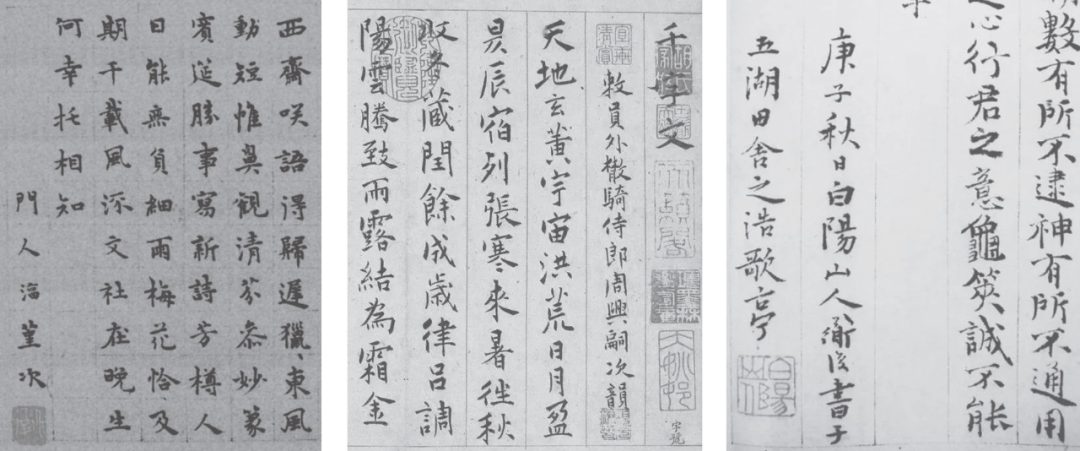 西齋咲語得歸遲獵〻東風
動短惟鼻觀清芬叅妙篆
賓筵勝事寫新詩芳樽人
日能無負細雨梅花恰及
期千載風流文社在晚生
何幸托相知
門人 次
千字文
敕員外散騎侍郎周興嗣次韻
天地玄黃宇宙洪荒日月盈
昃辰宿列張寒來暑往秋
收冬藏閏餘成歲律呂調
陽雲騰致雨露結為霜金
數有所不逮神有所不通用
之心行君之意龜筴誠不能
事
庚子秋日白陽山人衜復書于
五湖田舍之浩歌亭
白陽